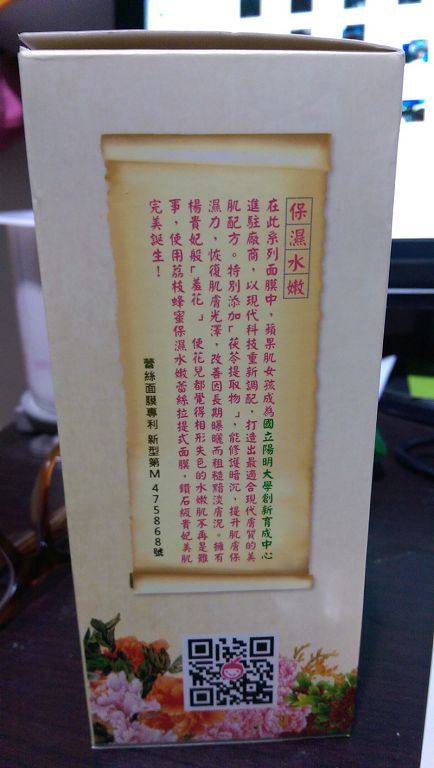 保濕水嫩
在此系列面膜中，蘋果肌女孩成為國立陽明大學創新育成中心
進駐廠商，以現代科技重新調配，打造出最適合現代膚質的美
肌配方。特別添加「茯苓提取物」，能修護暗沉，提升肌膚保
濕力，恢復肌膚光澤，改善因長期曝曬而粗糙黯淡膚況。擁有
楊貴妃般「羞花」使花兒都覺得相形失色的水嫩肌不再是難
事，使用荔枝蜂蜜保濕水嫩蕾絲拉提式面膜，鑽石級貴妃美肌
完美誕生！
蕾絲面膜專利 新型第M 475868號